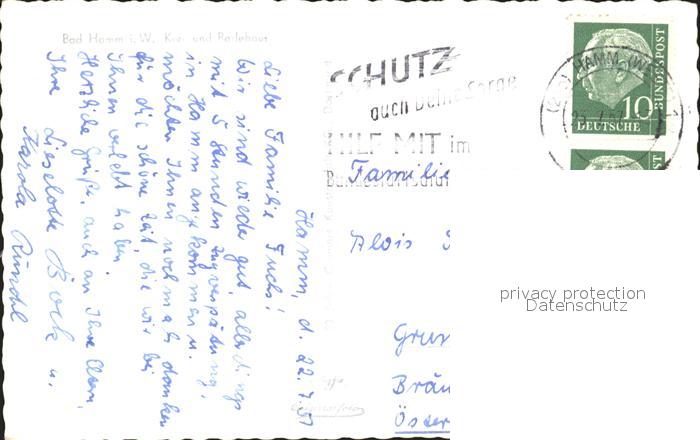 Bad Hamm i. W. Kur- und Badehaus
Hamm, d. 22.7.57
Liebe Familie Fuchs!
Wir sind wieder gut, allerdings
mit 5 Stunden Zugverspätung,
in Hamm angekommen.
möchten Ihnen nochmals danken
für die schöne Zeit, die wir bei
Ihnen verlebt haben.
Herzliche Grüße, auch an Ihre Eltern,
Ihre Lieselotte Bock u.
SCHUTZ
auch Deine Sorge
HILF MIT im
HAMM (WESTF)
DEUTSCHE
BUNDESPOST
10
Familie
Alois
Grun
Bräu
Öster
privacy protection
Datenschutz